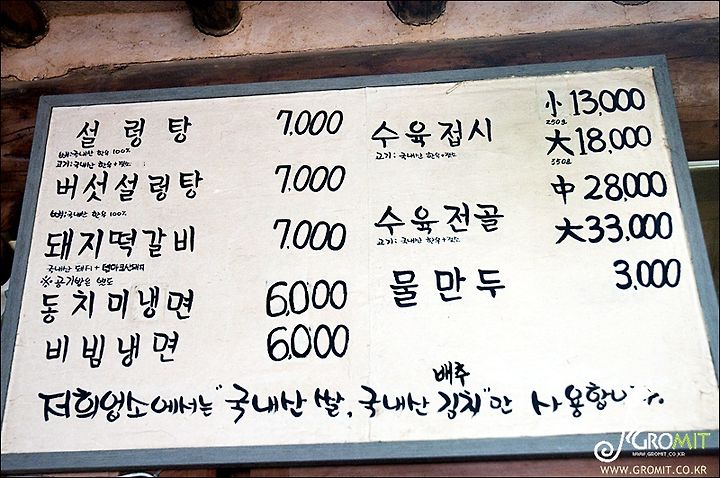 설렁탕 7,000
뼈:국내산 한우 100%
고기:국내산 한우+젖소
버섯설렁탕 7,000
뼈:국내산 한우 100%
돼지떡갈비 7,000
국내산 돼지 + 덴마크산돼지
※ 공기밥은 별도
동치미냉면 6,000
비빔냉면 6,000
수육접시 小 13,000
250g
大 18,000
550g
고기:국내산 한우+젖소
수육전골 中 28,000
大 33,000
고기:국내산 한우+젖소
물만두 3,000
저희업소에서는 "국내산 쌀, 국내산 배추김치"만 사용합니
GROMIT
WWW.GROMIT.CO.KR
WWW.GROMIT.CO.KR